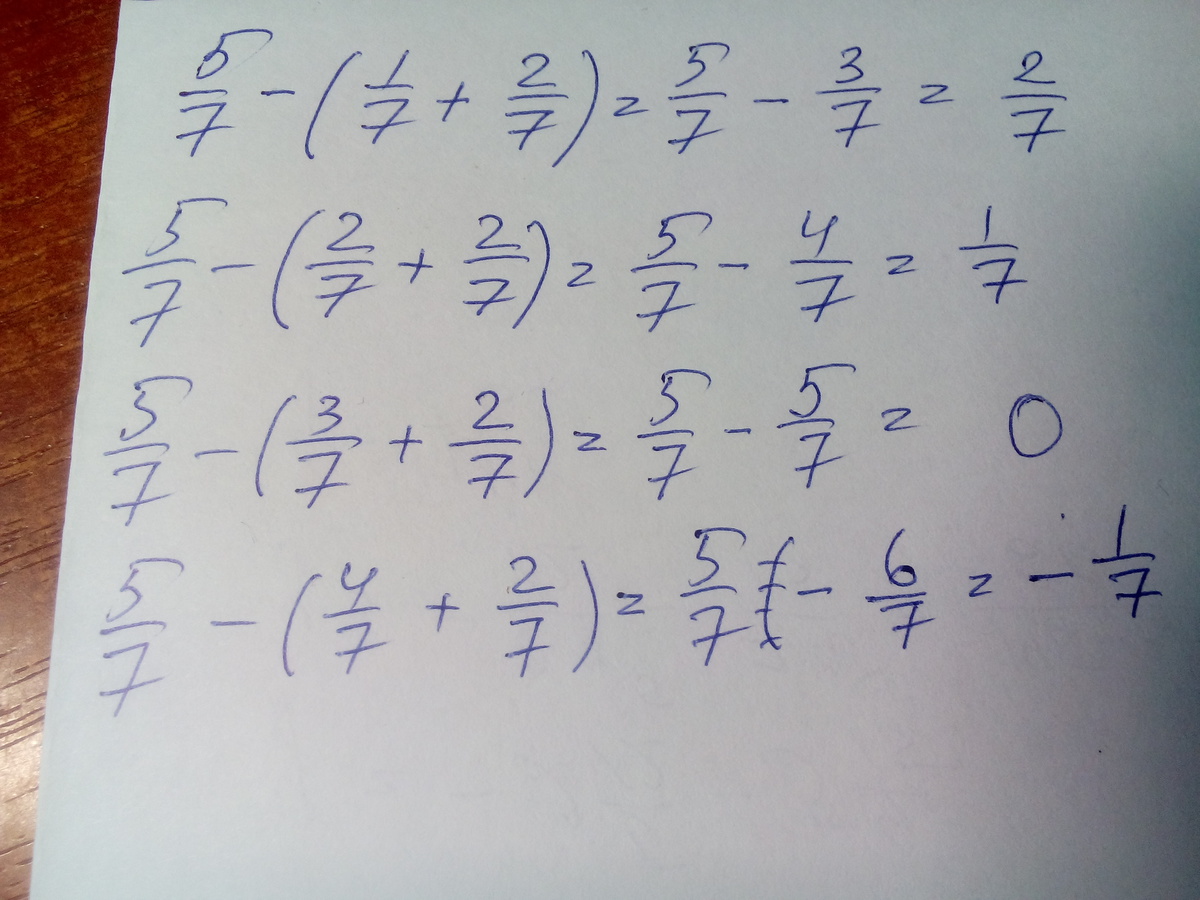 5/7 - (1/7 + 2/7) = 5/7 - 3/7 = 2/7
5/7 - (2/7 + 2/7) = 5/7 - 4/7 = 1/7
5/7 - (3/7 + 2/7) = 5/7 - 5/7 = 0
5/7 - (4/7 + 2/7) = 5/7 - 6/7 = - 1/7